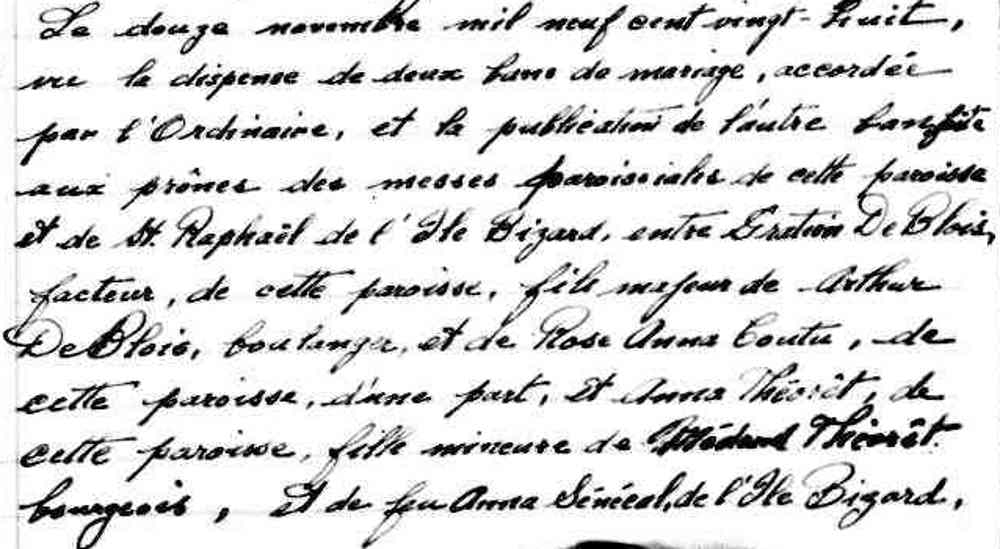 Le douze novembre mil neuf cent vingt-huit,
vu la dispense de deux bans de mariage, accordée
par l'Ordinaire, et la publication de l'autre ban faite
aux prônes des messes paroissiales de cette paroisse
et de St. Raphaël de l'Ile Bizard, entre Gratien DeBlois,
facteur, de cette paroisse, fils majeur de Arthur
DeBlois, boulanger, et de Rose Anna Coutu, de
cette paroisse, d'une part, et Anna Théorêt, de
cette paroisse, fille mineure de Médard Théorêt
bourgeois, et de feu Anna Sénécal, de l'Ile Bizard,